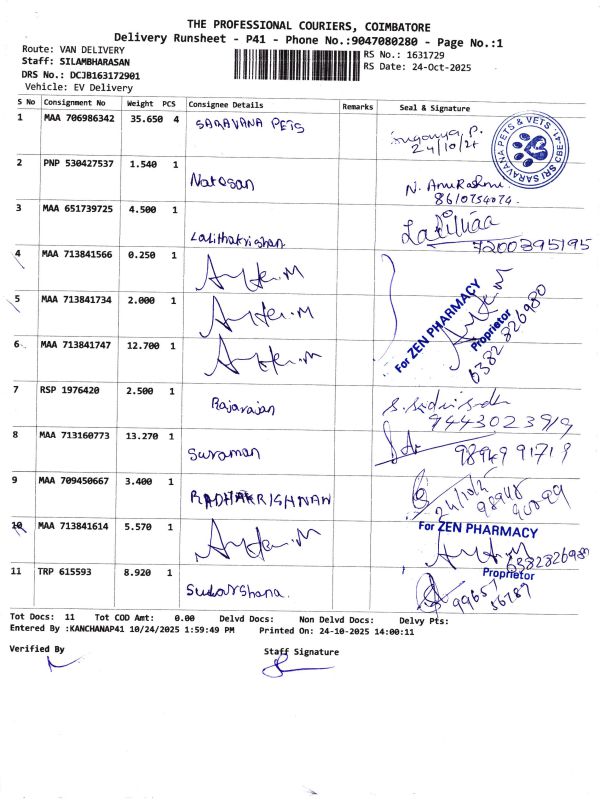 THE PROFESSIONAL COURIERS, COIMBATORE
Delivery Runsheet - P41 - Phone No.:9047080280 - Page No.:1
Route: VAN DELIVERY
RS No.: 1631729
Staff: SILAMBHARASAN
RS Date: 24-Oct-2025
DRS No.: DCJB163172901
Vehicle: EV Delivery
S No Consignment No Weight PCS Consignee Details Remarks Seal & Signature
1 MAA 706986342 35.650 4 SARAVANA PETS
24/10/25
SRI SARAVANA PETS & VETS CBE-41
2 PNP 530427537 1.540 1
Natesan
8610754074
3 MAA 651739725 4.500 1
Lalithakrishan
7200395195
4 MAA 713841566 0.250 1
5 MAA 713841734 2.000 1
For ZEN PHARMACY
Proprietor
6382 826980
6 MAA 713841747 12.700 1
7 RSP 1976420 2.500 1
Rajarajan
9443023919
8 MAA 713160773 13.270 1
Suraman
98949 91719
9 MAA 709450667 3.400 1
RADHAKRISHNAN
24/10/25
10 MAA 713841614 5.570 1
For ZEN PHARMACY
6382826980
Proprietor
11 TRP 615593 8.920 1
Sudarshana.
99657
56789
Tot Docs: 11 Tot COD Amt: 0.00 Delvd Docs: Non Delvd Docs: Delvy Pts:
Entered By :KANCHANAP41 10/24/2025 1:59:49 PM Printed On: 24-10-2025 14:00:11
Verified By
Staff Signature